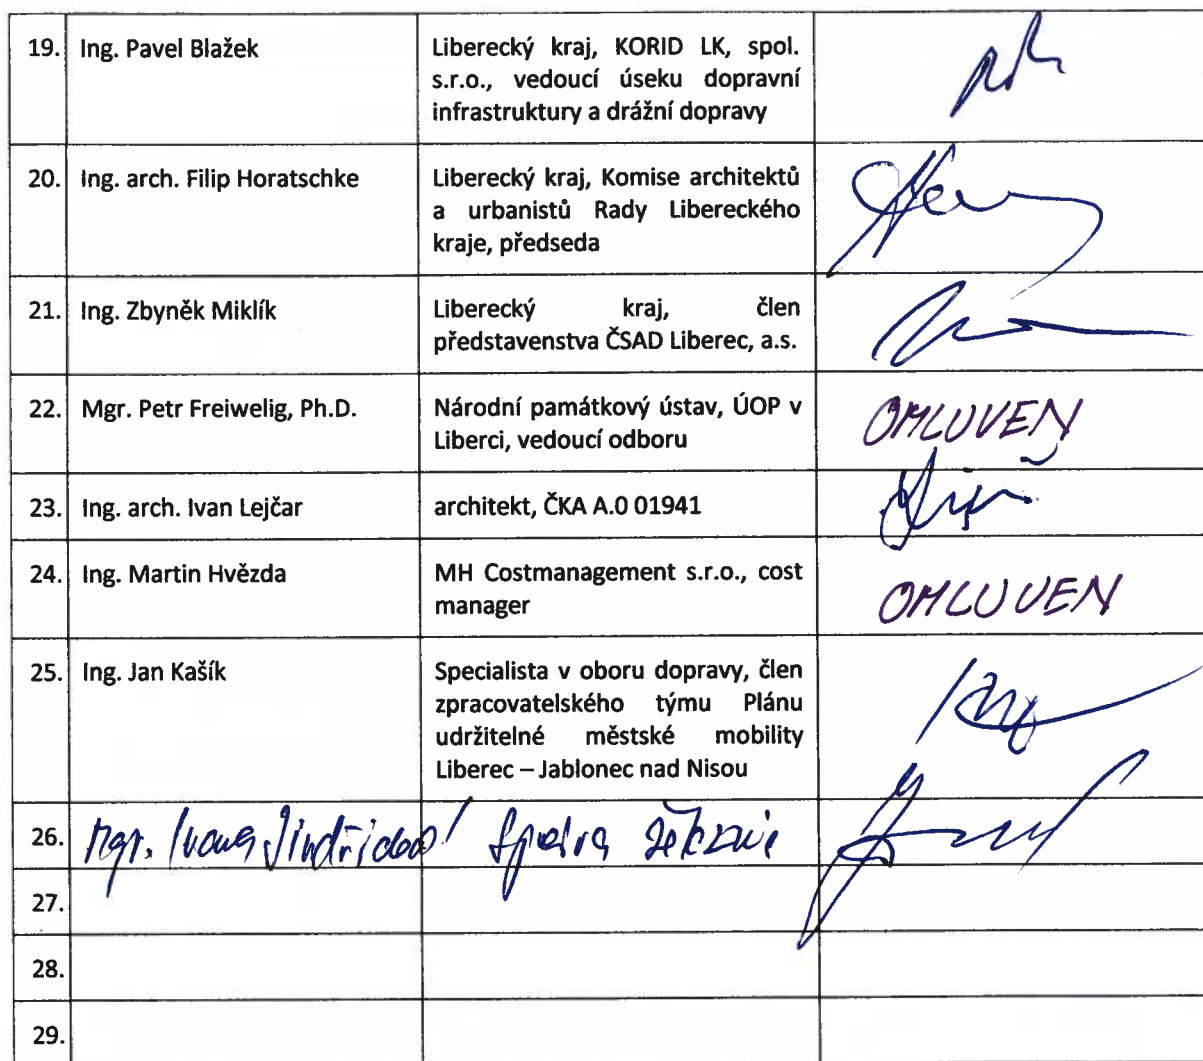 19. Ing. Pavel Blažek
Liberecký kraj, KORID LK, spol.
s.r.o., vedoucí úseku dopravní
infrastruktury a drážní dopravy
20. Ing. arch. Filip Horatschke
Liberecký kraj, Komise architektů
a urbanistů Rady Libereckého
kraje, předseda
21. Ing. Zbyněk Miklík
Liberecký kraj, člen
představenstva ČSAD Liberec, a.s.
22. Mgr. Petr Freiwelig, Ph.D.
Národní památkový ústav, ÚOP v
Liberci, vedoucí odboru
OMLUVEN
23. Ing. arch. Ivan Lejčar
architekt, ČKA A.0 01941
24. Ing. Martin Hvězda
MH Costmanagement s.r.o., cost
manager
OMLUVEN
25. Ing. Jan Kašík
Specialista v oboru dopravy, člen
zpracovatelského týmu Plánu
udržitelné městské mobility
Liberec – Jablonec nad Nisou
26. Mgr. Ivana
Správa
27.
28.
29.